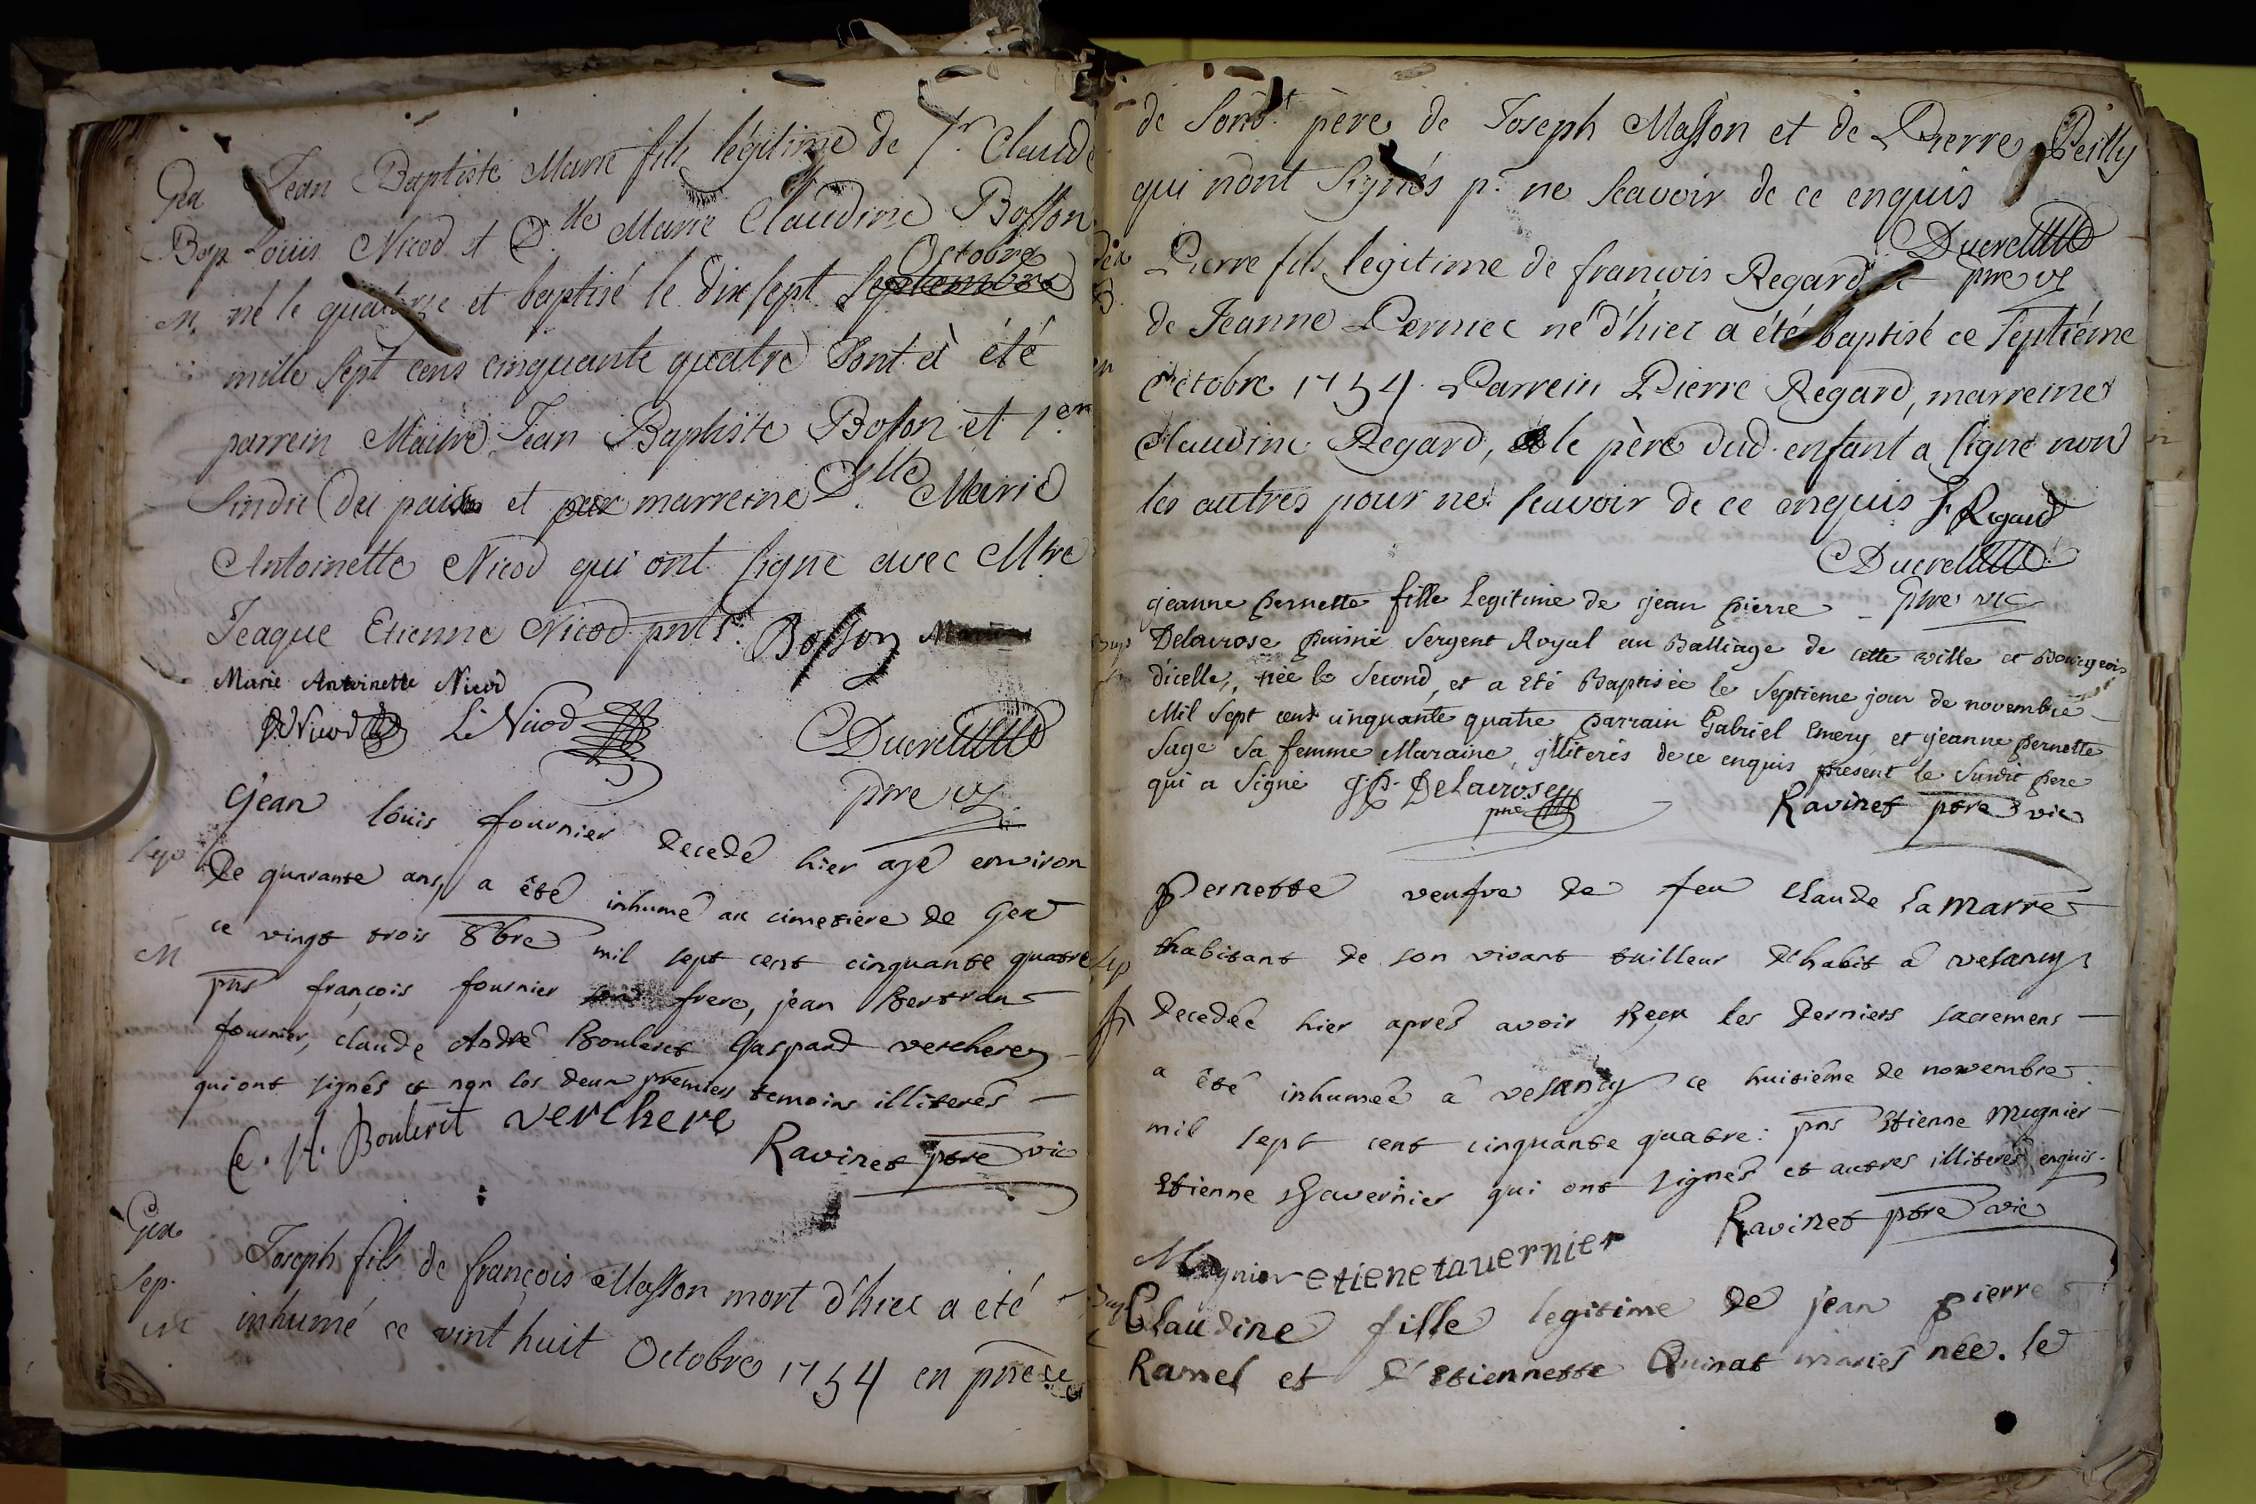 Gex Jean Baptiste Marie fils légitime de Sr. Claude
Bap Louis Nicod et D.lle Marie Claudine Bosson
Octobre
M. né le quatorze et baptisé le dix sept Septembre
mille Sept cens cinquante quatre dont à été
parrein Maitre Jean Baptiste Bosson et 1.er
Sindic du pais et par marreine D.lle Marie
Antoinette Nicod qui ont signe avec Mtre
Jeaque Etienne Nicod pnts. Bosson
Marie Antoinette Nicod
Nicod L Nicod Ducret
ptre vic
Jean louis fournier decedé hier agé environ
Sep de quarante ans, a été inhumé au cimetiere de Gex
M ce vingt trois 8bre mil sept cent cinquante quatre
pns françois fournier son frere, jean Bertran
fournier, claude André Bouleret Gaspard verchere
qui ont signés et non les deux premiers temoins illiterés
C. A. Bouleret verchere
Ravinet ptre vic
Gex Joseph fils de françois Masson mort d'hier a été
Sep. M inhumé ce vint huit Octobre 1754 en prése
de Sond.t père de Joseph Masson et de Pierre Peilly
qui n'ont Signés p.r ne Scavoir de ce enquis
Ducret
Pierre fils légitime de françois Regard et ptre vic
de Jeanne Pernier né d'hier a été baptisé ce Septiéme
Octobre 1754. Parrein Pierre Regard, marreine
Claudine Regard, le père dud. enfant a signé non
les autres pour ne scavoir de ce enquis f. Regard
Ducret
jeanne pernette fille Legitime de jean pierre ptre vic
Delacrose puiné Sergent Royal au Balliage de cette ville et Bourgeois
d'icelle, née le Second, et a Eté Baptisée le Septieme jour de novembre
Mil Sept cent cinquante quatre parrain Gabriel Emery et jeanne pernette
Sage Sa femme Maraine, illiterés de ce enquis present le Susdit pere
qui a Signé J.P. Delacrose
Ravinet ptre vic
pernette veufve de feu Claude Lamarre
Sep habitant de son vivant tailleur d'habit a vesancy
decedée hier aprés avoir Reçu les derniers sacremens
a été inhumée a vesancy ce huitiéme de novembre
mil sept cent cinquante quatre: pns Etienne Mugnier
Etienne Tavernier qui ont signés et autres illiterés enquis.
Ravinet ptre vic
Mugnier etiene tavernier
Claudine fille legitime de jean pierre
Ramel et d'Etiennette Quinat mariés née. le